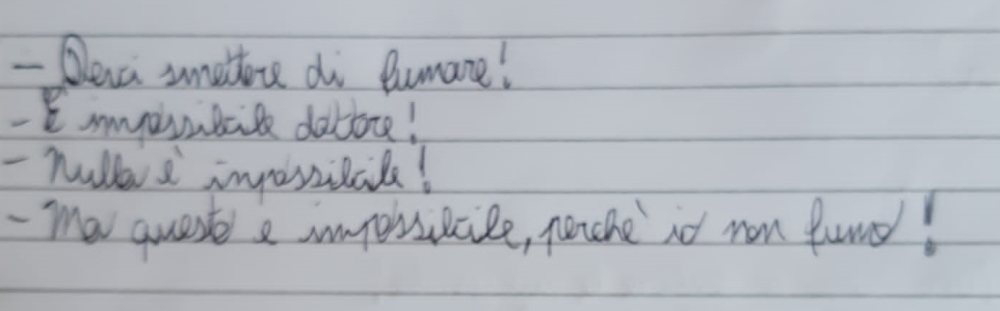 - Devi smettere di fumare!
- È impossibile dottore!
- Nulla è impossibile!
- Ma questo e impossibile, perchè io non fumo!